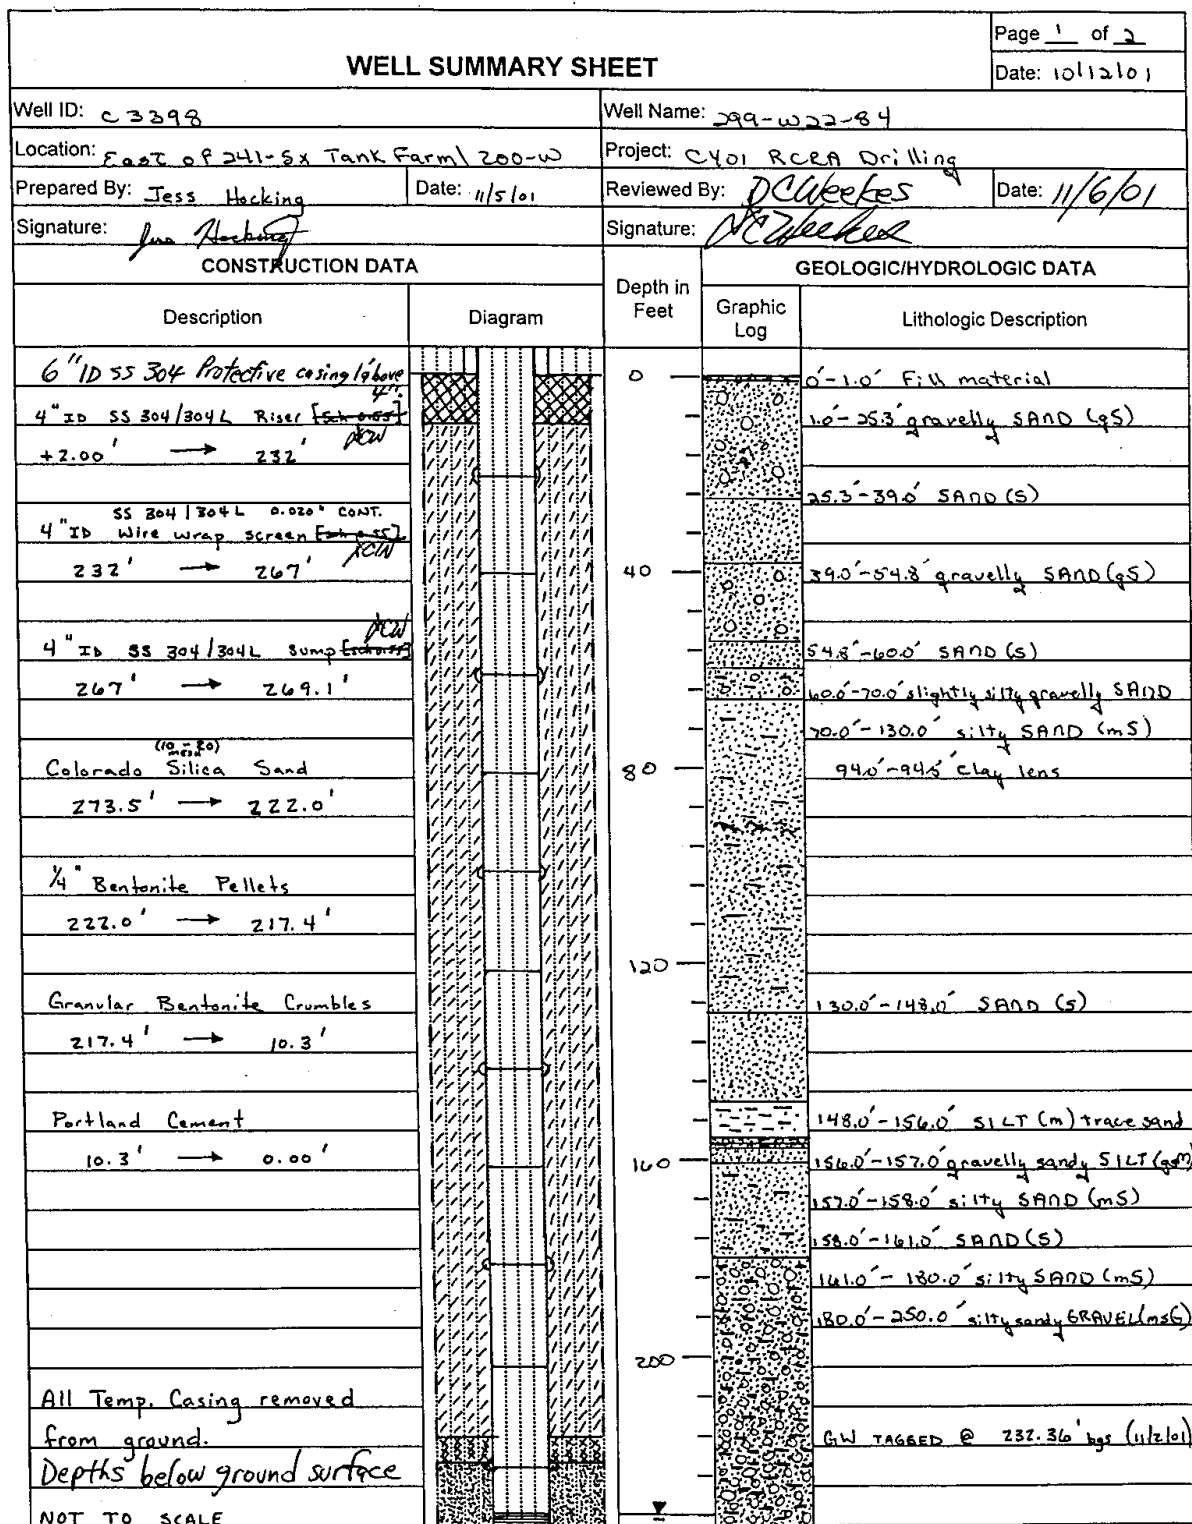 Page 1 of 2
WELL SUMMARY SHEET
Date: 10/12/01
Well ID: C3398
Well Name: 299-W22-84
Location: East of 241-SX Tank Farm\ 200-W
Project: CY01 RCRA Drilling
Prepared By: Jess Hocking
Date: 11/5/01
Reviewed By: DC Weekes
Date: 11/6/01
Signature: Jess Hocking
Signature: DC Weekes
CONSTRUCTION DATA
Depth in Feet
GEOLOGIC/HYDROLOGIC DATA
Description
Diagram
Graphic Log
Lithologic Description
6" ID SS 304 Protective casing above
4".
4" ID SS 304/304L Riser
DCW
+2.00' → 232'
SS 304/304L 0.020" CONT.
4" ID Wire wrap screen
DCW
232' → 267'
DCW
4" ID SS 304/304L Sump
267' → 269.1'
(10-20) mesh
Colorado Silica Sand
273.5' → 222.0'
1/4" Bentonite Pellets
222.0' → 217.4'
Granular Bentonite Crumbles
217.4' → 10.3'
Portland Cement
10.3' → 0.00'
All Temp. Casing removed
from ground.
Depths below ground surface
NOT TO SCALE
0
40
80
120
160
200
0'-1.0' Fill material
1.0'-25.3' gravelly SAND (gS)
25.3'-39.0' SAND (S)
39.0'-54.8' gravelly SAND (gS)
54.8'-60.0' SAND (S)
60.0'-70.0' slightly silty gravelly SAND
70.0'-130.0' silty SAND (mS)
94.0'-94.5' Clay lens
130.0'-148.0' SAND (S)
148.0'-156.0' SILT (m) trace sand
156.0'-157.0' gravelly sandy SILT (gsm)
157.0'-158.0' silty SAND (mS)
158.0'-161.0' SAND (S)
161.0'-180.0' silty SAND (mS)
180.0'-250.0' silty sandy GRAVEL (msG)
GW TAGGED @ 232.36' bgs (11/2/01)